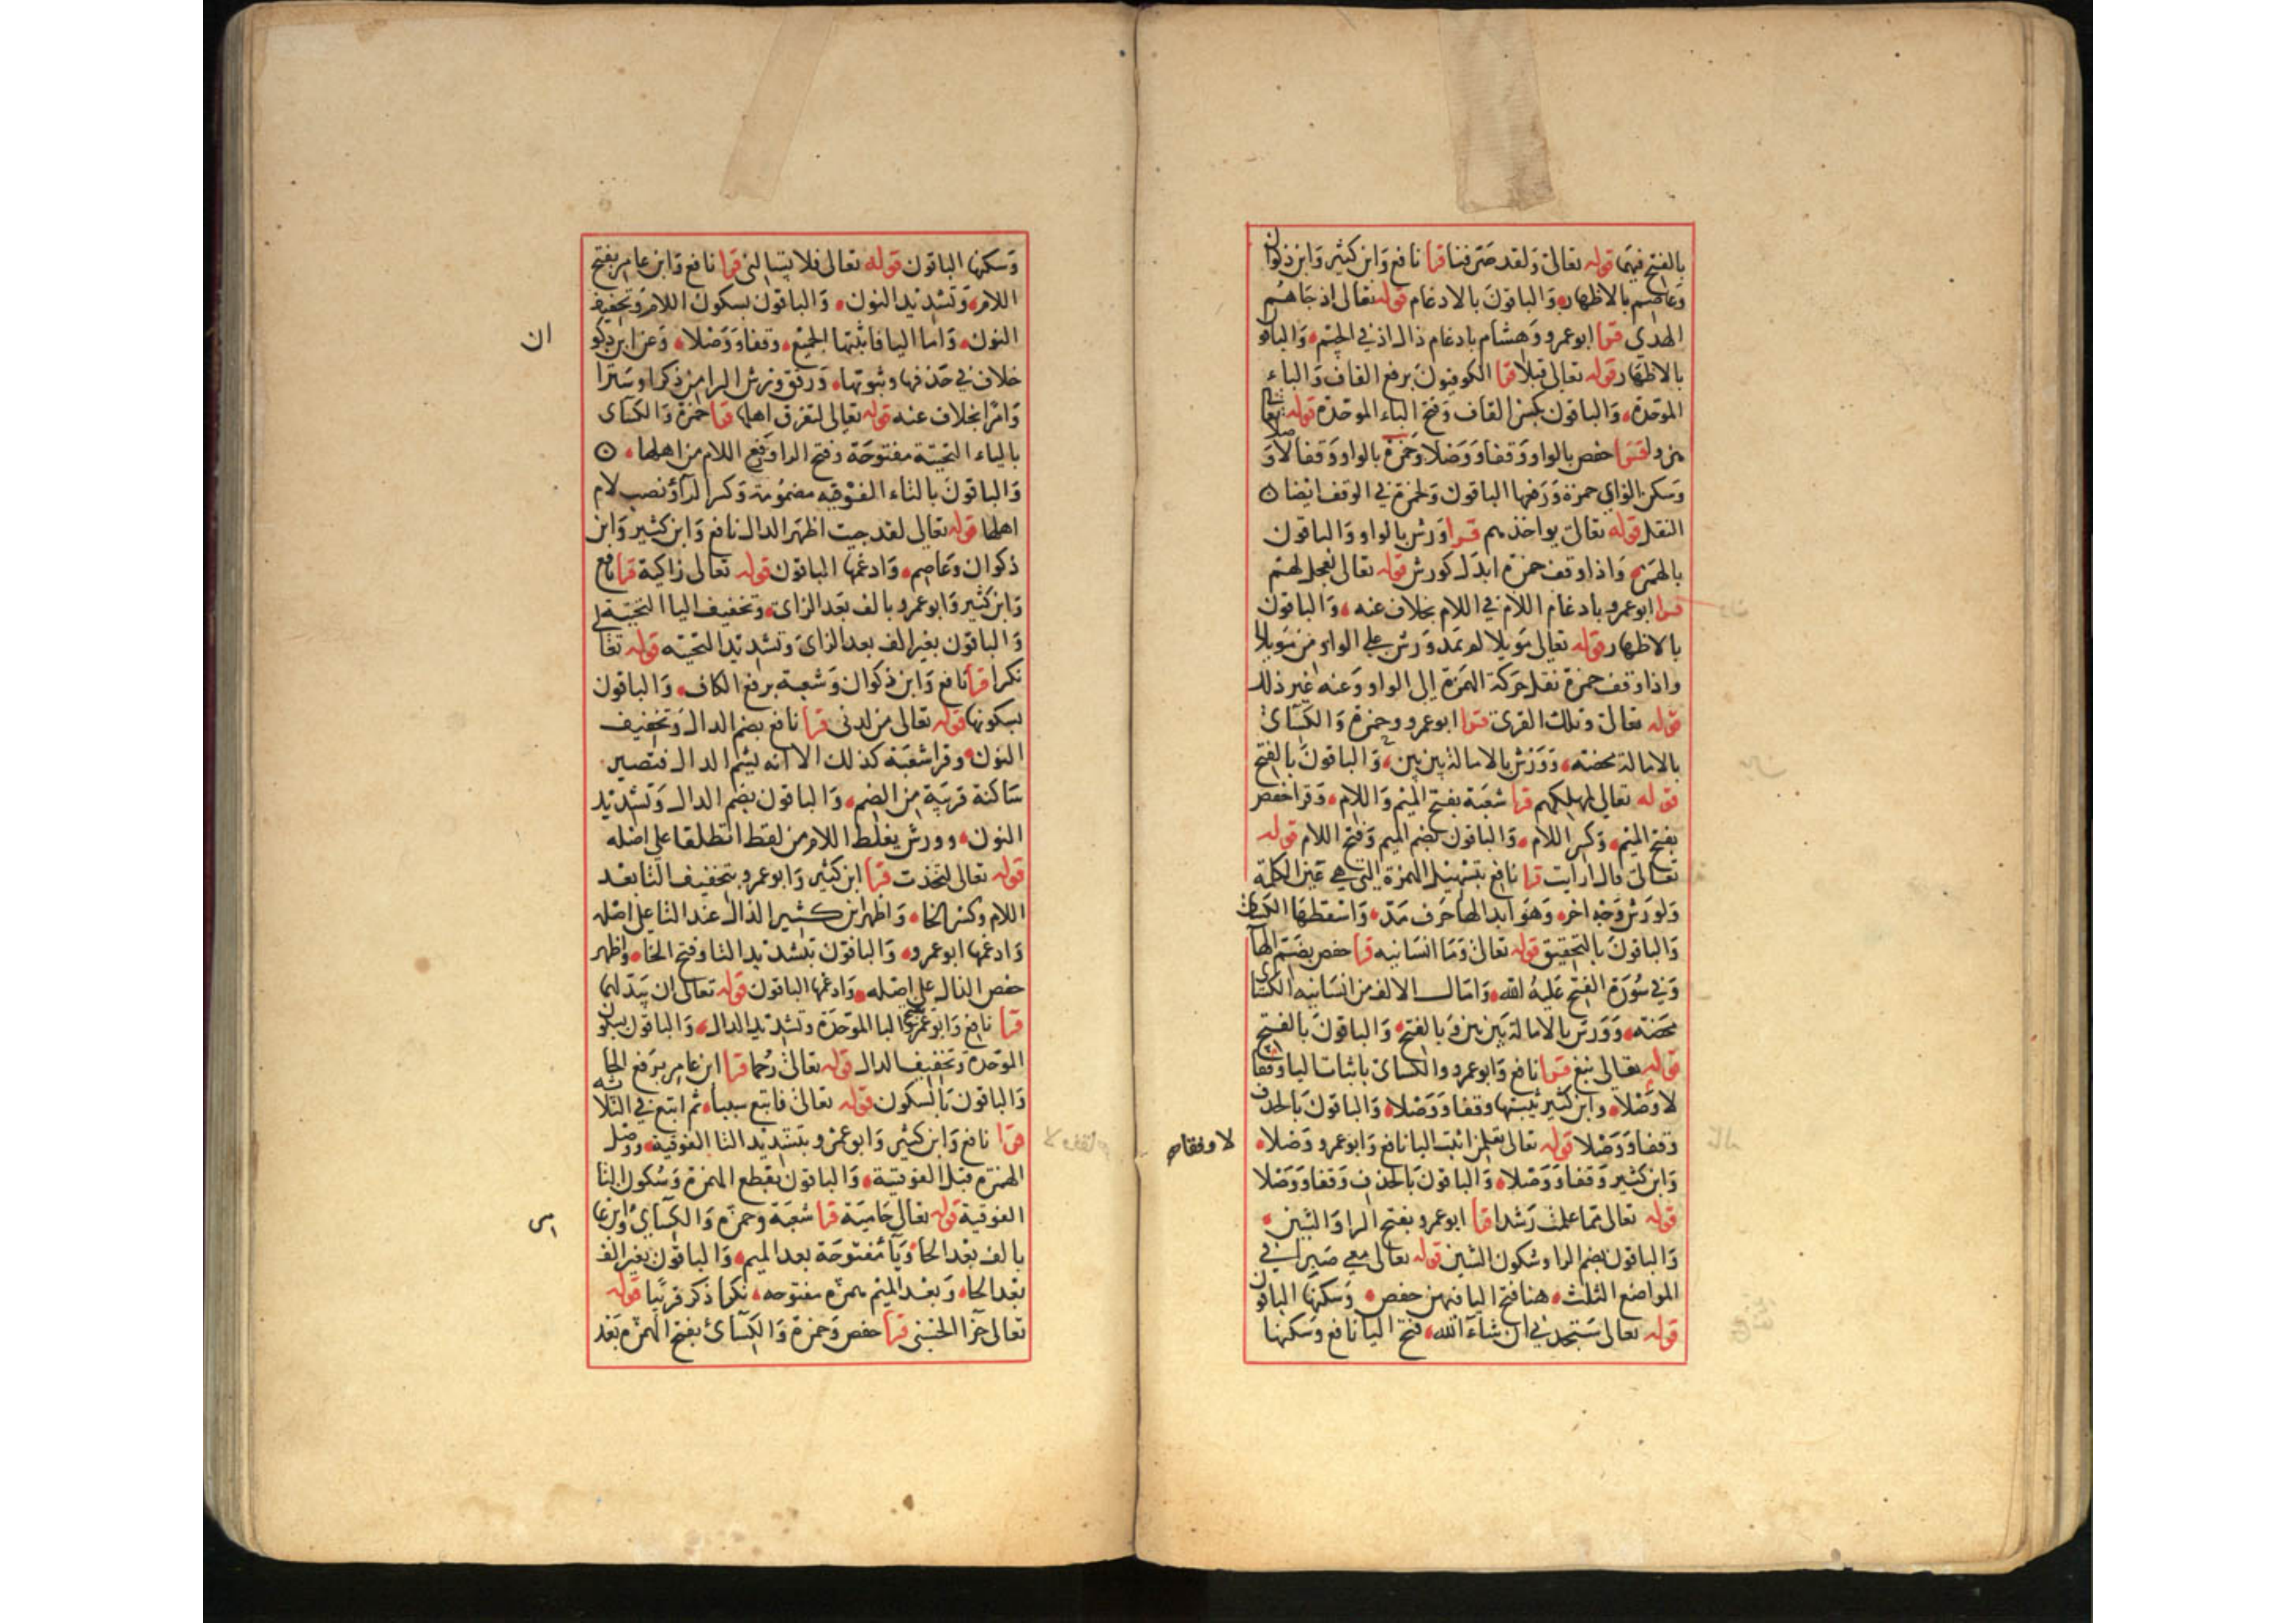 بالفتح فيهما قوله تعالى ولقد صرفنا قرا نافع وابن كثير وابن ذكوان
وعاصم بالاظهار والباقون بالادغام قوله تعالى اذ جاهم
الهدي قرا ابوعمرو وهشام بادغام ذال اذ في الجيم والباقو
بالاظهار قوله تعالى قبلا قرا الكوفيون برفع القاف والباء
الموحدة والباقون بكسر القاف وفتح الباء الموحدة قوله تعالي
هزوا قرا حفص بالواو وقفا ووصلا وحمزة بالواو وقفا لا وصلا
وسكن الزاي حمزة ورفعها الباقون ولحمزة في الوقف ايضا
النقل قوله تعالى يواخذهم قرا ورش بالواو والباقون
بالهمزه واذا وقف حمزه ابدل كورش قوله تعالى لعجل لهم
قرا ابوعمرو بادغام اللام في اللام بخلاف عنه والباقون
بالاظهار قوله تعالى مويلا لم يمد ورش علي الواو من مويلا
واذا وقف حمزة نقل حركة الهمزة الى الواو وعنه غير ذلك
قوله تعالى وتلك القرى قرا ابوعمرو وحمزة والكسآئ
بالامالة محضه وورش بالامالة بين بين والباقون بالفتح
قوله تعالي لمهلكهم قرا شعبة بفتح الميم واللام وقرا حفص
بفتح الميم وكسر اللام والباقون بضم الميم وفتح اللام قوله
تعالى قال ارايت قرا نافع بتسهيل الهمزة التي هي عين الكلمة
ولورش وجه اخر وهو ابدالها حرف مد واسقطها الكسائ
والباقون بالتحقيق قوله تعالى وما انسانيه قرا حفص بضم الهآ
وفي سورة الفتح عليه الله وامال الالف من انسانيه الكسائ
محضه وورش بالامالة بين بين وبالفتح والباقون بالفتح
قوله تعالى نبغ قرا نافع وابوعمرو والكسائ باثبات اليا وقفا
لا وصلا وابن كثير يثبتها وقفا ووصلا والباقون بالحذف
وقفا ووصلا قوله تعالى تعلمن اثبت اليا نافع وابوعمرو وصلا
لا وقفا صح
وابن كثير وقفا ووصلا والباقون بالحذف وقفا ووصلا
قوله تعالى مما علمت رشدا قرا ابوعمرو بفتح الرا والشين
والباقون بضم الرا وسكون الشين قوله تعالى معي صبرا في
المواضع الثلث هنا فتح اليا فيهن حفص وسكنها الباقون
قوله تعالى ستجدني ان شاء الله فتح اليا نافع وسكنها
وسكنها الباقون قوله تعالى فلا يتسالنى قرا نافع وابن عامر بفتح
اللام وتشديد النون والباقون بسكون اللام وتخفيف
النون واما اليا فاثبتها الجميع وقفا ووصلا وعن ابن ذكو
ان
خلاف في حذفها وثبوتها ورقق ورش الرا من ذكرا وسترا
وامرا بخلاف عنه قوله تعالى لتغرق اهلها قرا حمزة والكسآى
بالياء التحتية مفتوحة وفتح الرا ورفع اللام من اهلها
والباقون بالتاء الفوقيه مضمومة وكسر الرآ ونصب لام
اهلها قوله تعالى لقد جيت اظهر الدال نافع وابن كثير وابن
ذكوان وعاصم وادغمها الباقون قوله تعالى زاكية قرا نافع
وابن كثير وابوعمرو بالف بعد الزاى وتخفيف اليا التحتية
والباقون بغير الف بعد الزاى وتشديد التحتيه قوله تعالي
نكرا قرا نافع وابن ذكوان وشعبة برفع الكاف والباقون
بسكونها قوله تعالى من لدنى قرا نافع بضم الدال وتخفيف
النون وقرا شعبة كذلك الا انه يشم الدال فتصير
ساكنة قريبة من الضم والباقون بضم الدال وتشديد
النون وورش يغلظ اللام من لفظ انطلقا علي اصله
قوله تعالى لتخذت قرا ابن كثير وابوعمرو بتخفيف التا بعد
اللام وكسر الخا واظهر ابن كثير الذال عند التا على اصله
وادغمها ابوعمرو والباقون بتشديد التا وفتح الخا واظهر
حفص الذال علي اصله وادغمها الباقون قوله تعالى ان يبدلهما
قرا نافع وابوعمرو بفتح البا الموحدة وتشديد الدال والباقون بسكون
الموحدة وتخفيف الدال قوله تعالى رحما قرا ابن عامر برفع الحا
والباقون بالسكون قوله تعالى فاتبع سببا ثم اتبع في الثلاثه
قرا نافع وابن كثير وابوعمرو بتشديد التا الفوقية ووصل
الهمزة قبل الفوقية والباقون بقطع الهمزة وسكون التا
الفوقية قوله تعالى حامية قرا شعبة وحمزة والكسآئ وابن عا
مر
بالف بعد الحا ويا مفتوحة بعد الميم والباقون بغير الف
بعد الحا وبعد الميم همزه مفتوحه نكرا ذكر قريبا قوله
تعالى جزآ الحسنى قرا حفص وحمزة والكسآئ بفتح الهمزه بعد